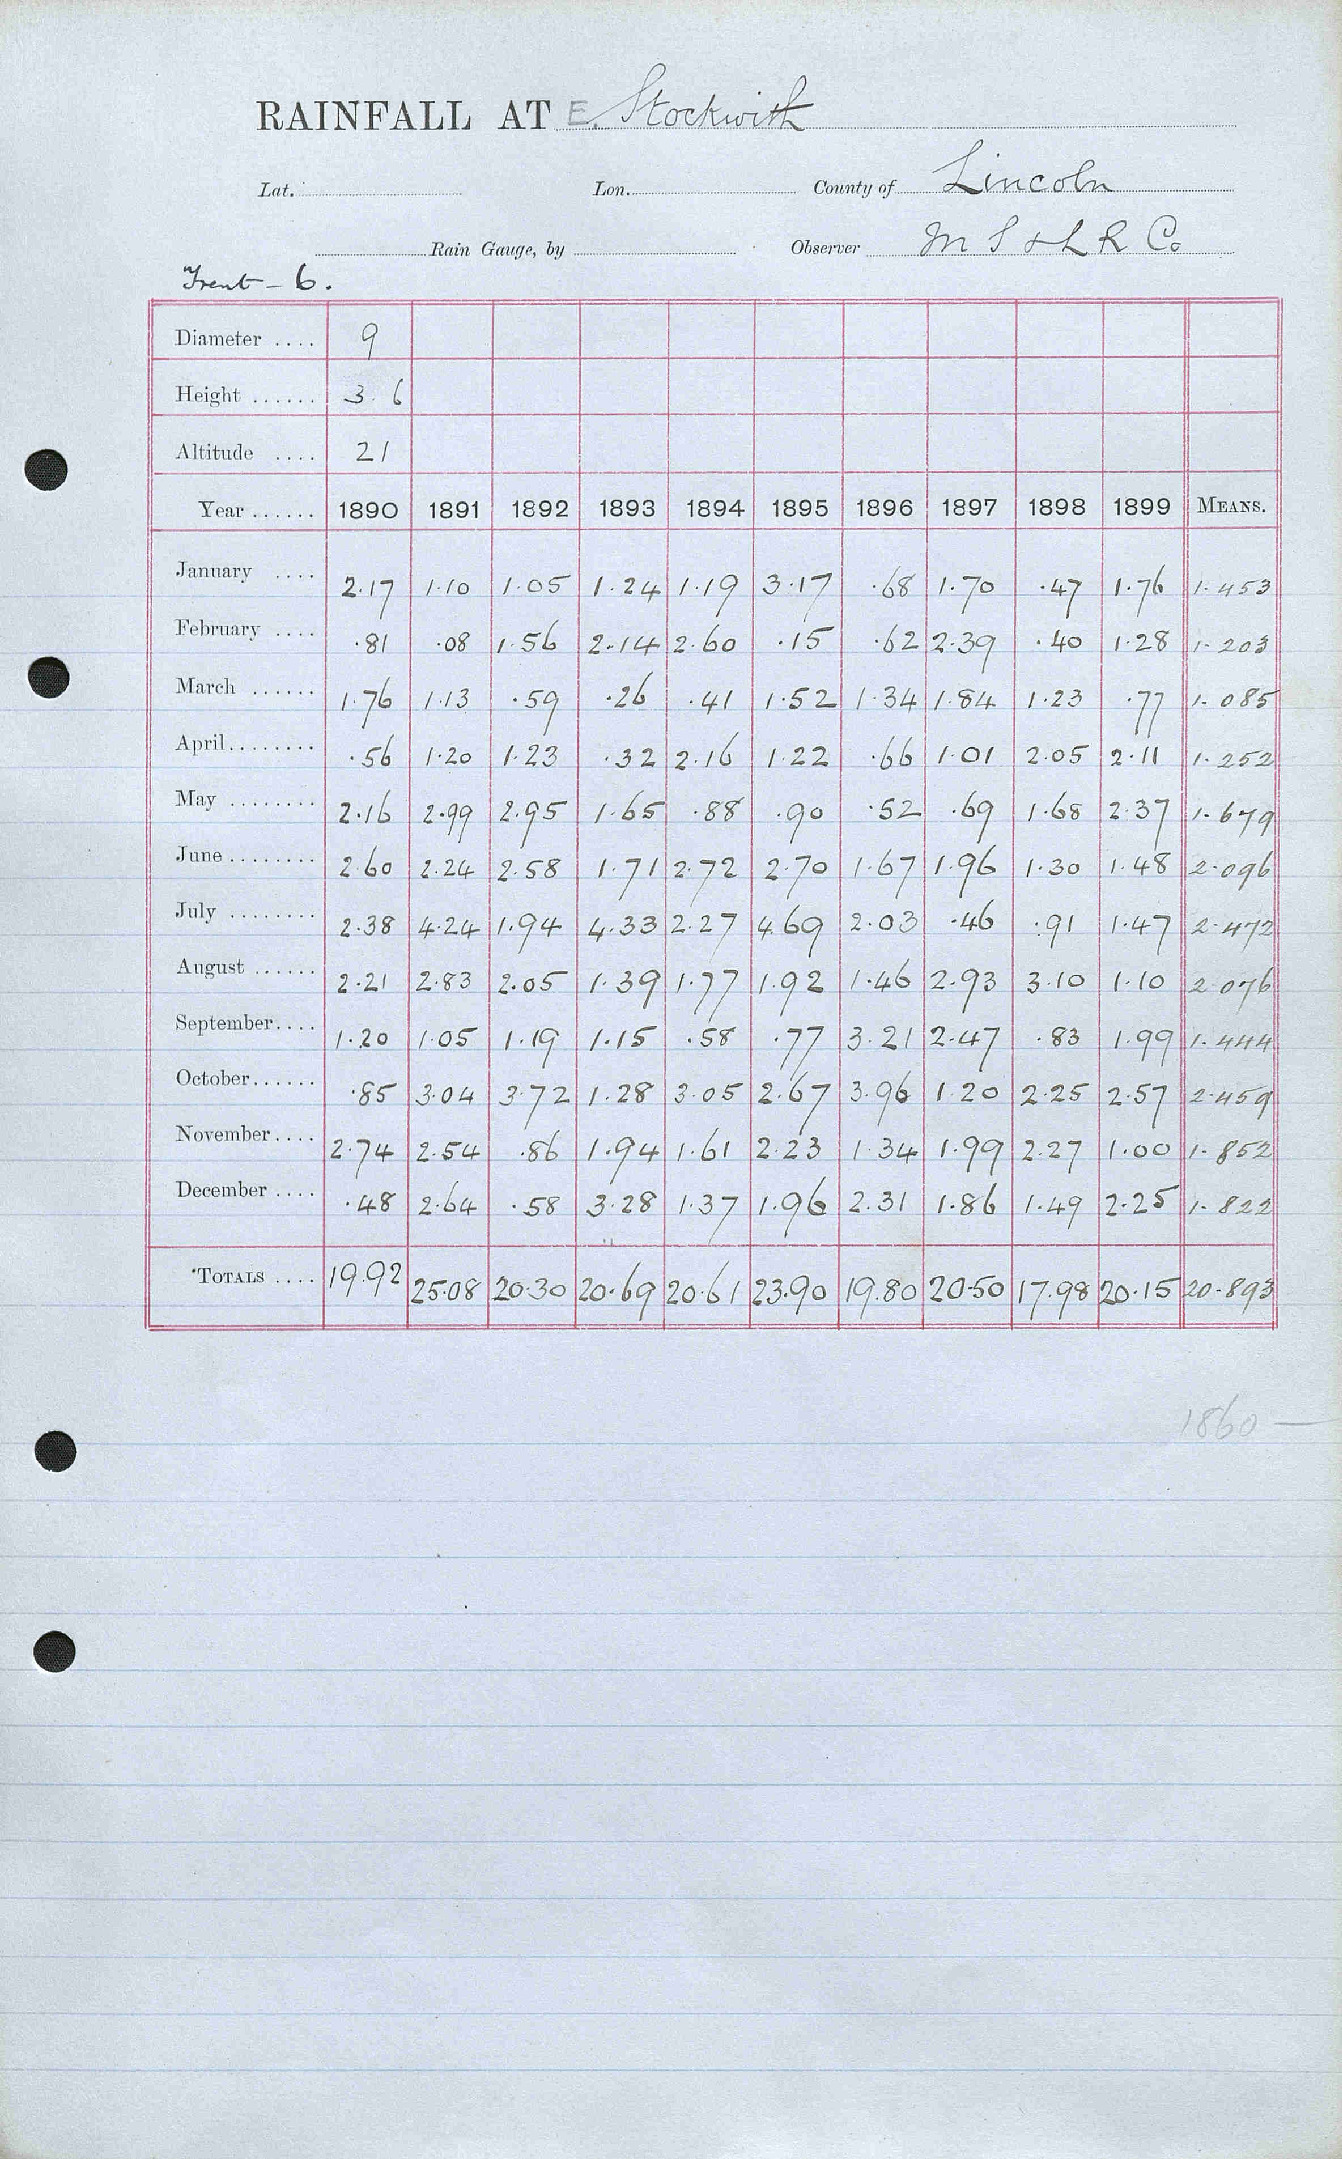 RAINFALL AT E. Stockwith
Lat. Lon. County of Lincoln
Rain Gauge, by Observer M S & L R Co
Trent - 6.
Diameter .... 9
Height ...... 3. 6
Altitude .... 21
Year ...... 1890 1891 1892 1893 1894 1895 1896 1897 1898 1899 MEANS.
January .... 2.17 1.10 1.05 1.24 1.19 3.17 .68 1.70 .47 1.76 1.453
February .... .81 .08 1.56 2.14 2.60 .15 .62 2.39 .40 1.28 1.203
March ...... 1.76 1.13 .59 .26 .41 1.52 1.34 1.84 1.23 .77 1.085
April........ .56 1.20 1.23 .32 2.16 1.22 .66 1.01 2.05 2.11 1.252
May ........ 2.16 2.99 2.95 1.65 .88 .90 .52 .69 1.68 2.37 1.679
June ........ 2.60 2.24 2.58 1.71 2.72 2.70 1.67 1.96 1.30 1.48 2.096
July ........ 2.38 4.24 1.94 4.33 2.27 4.69 2.03 .46 .91 1.47 2.472
August ...... 2.21 2.83 2.05 1.39 1.77 1.92 1.46 2.93 3.10 1.10 2.076
September.... 1.20 1.05 1.19 1.15 .58 .77 3.21 2.47 .83 1.99 1.444
October...... .85 3.04 3.72 1.28 3.05 2.67 3.96 1.20 2.25 2.57 2.459
November.... 2.74 2.54 .86 1.94 1.61 2.23 1.34 1.99 2.27 1.00 1.852
December .... .48 2.64 .58 3.28 1.37 1.96 2.31 1.86 1.49 2.25 1.822
TOTALS .... 19.92 25.08 20.30 20.69 20.61 23.90 19.80 20.50 17.98 20.15 20.893
1860 —